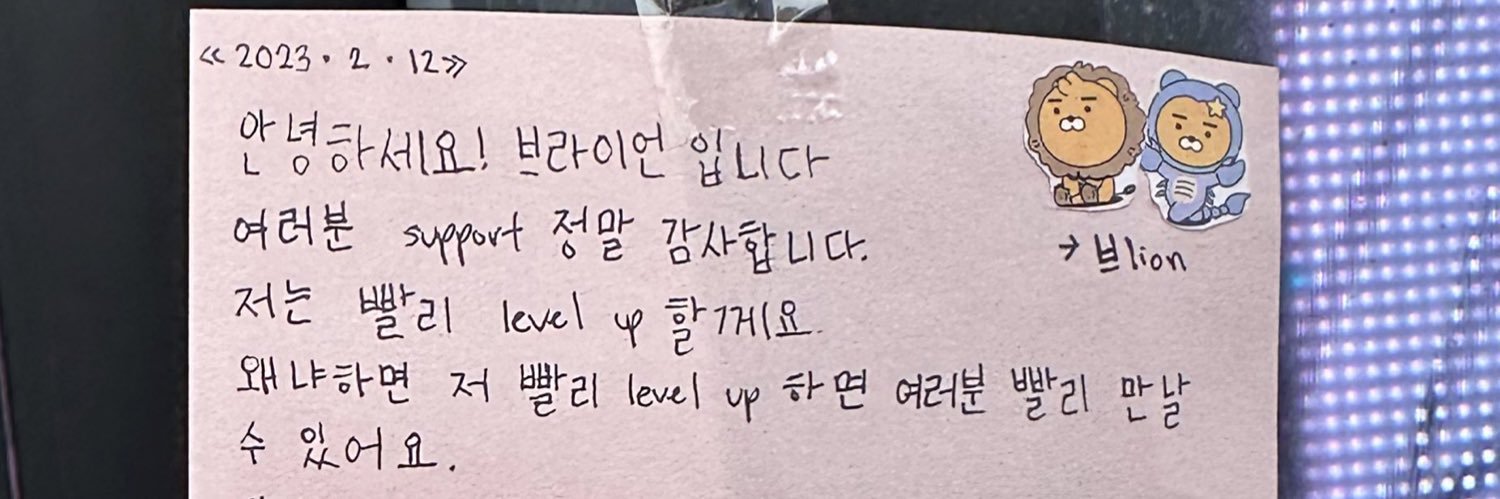 ≪ 2023 · 2 · 12 ≫
안녕하세요! 브라이언 입니다
여러분 support 정말 감사합니다.
저는 빨리 level up 할게요.
왜냐하면 저 빨리 level up 하면 여러분 빨리 만날
수 있어요.
→ 브lion